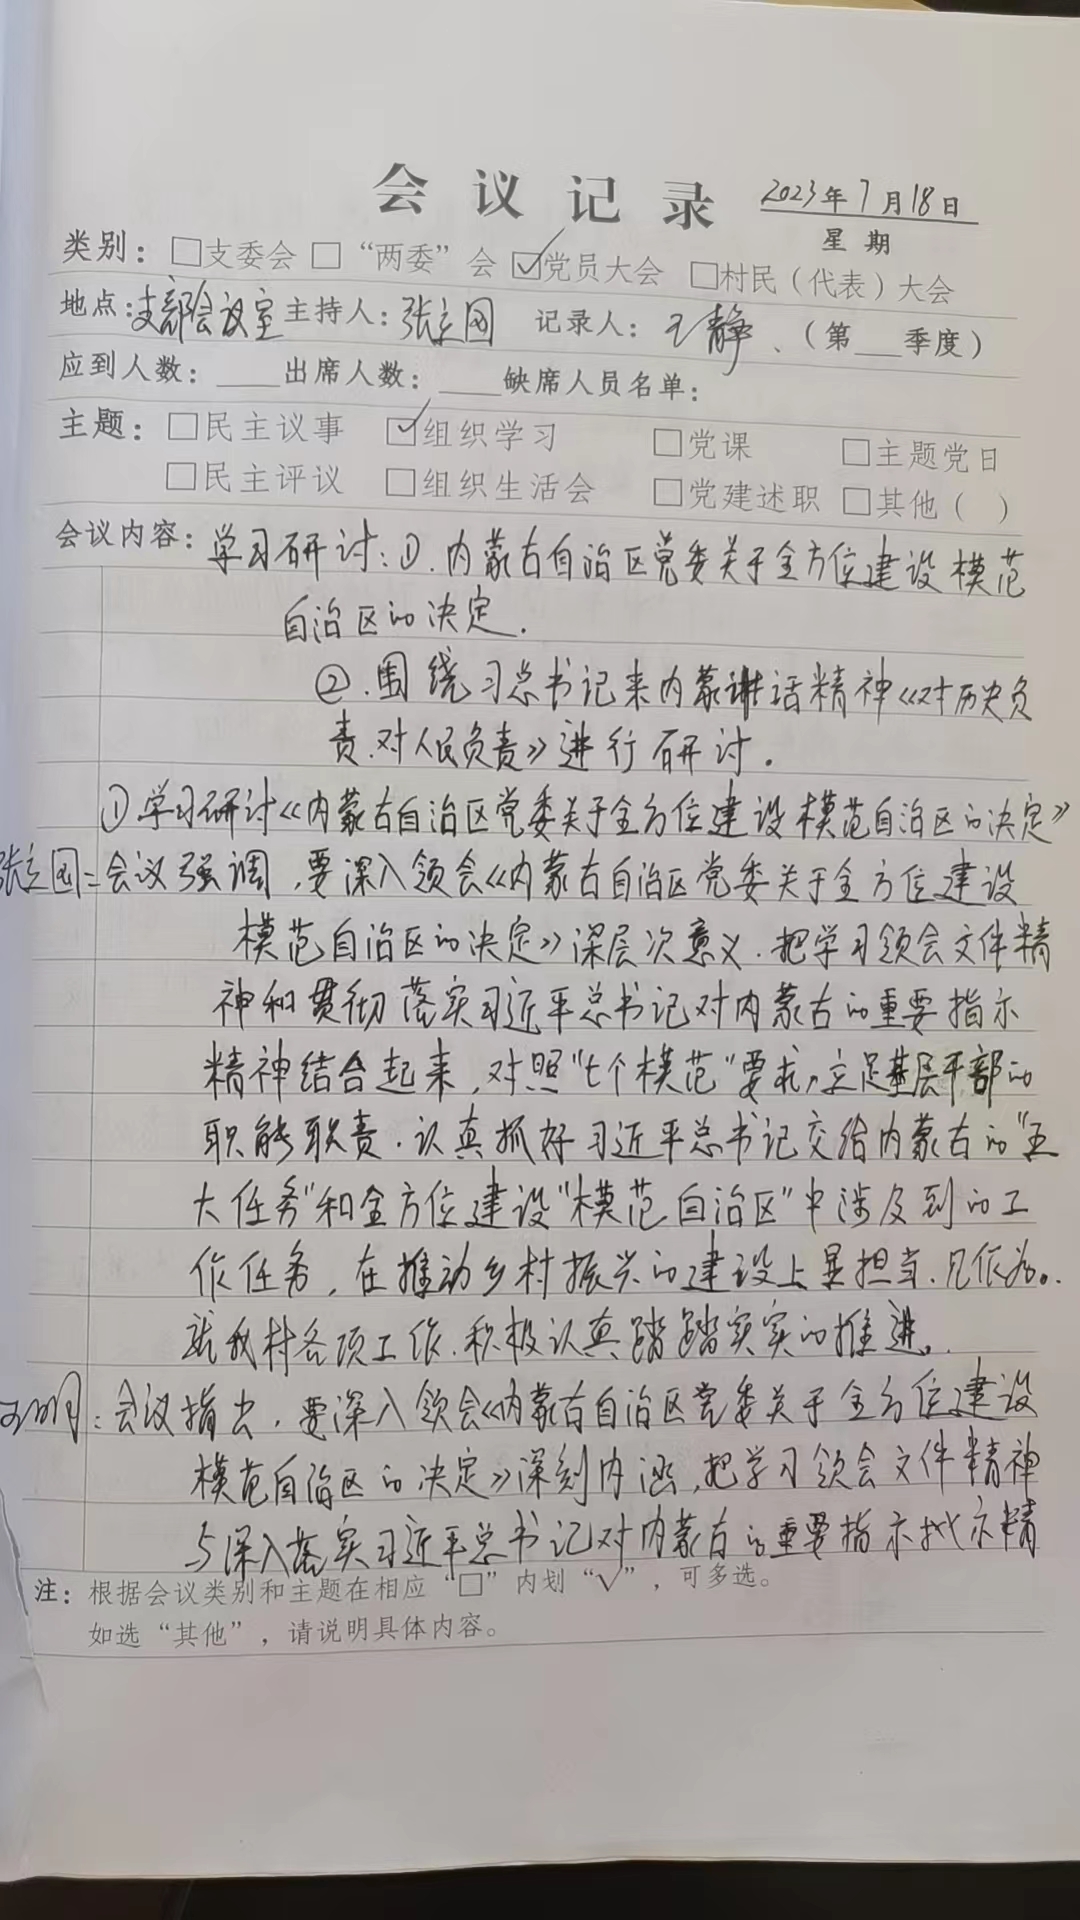 会议记录 2023年7月18日
星期
类别：□支委会 □“两委”会 ☑党员大会 □村民（代表）大会
地点：支部会议室 主持人：张立国 记录人：王静、（第___季度）
应到人数：____出席人数：____缺席人员名单：
主题：□民主议事 ☑组织学习 □党课 □主题党日
□民主评议 □组织生活会 □党建述职 □其他（ ）
会议内容：学习研讨：①.内蒙古自治区党委关于全方位建设模范
自治区的决定.
②.围绕习总书记来内蒙讲话精神《对历史负
责.对人民负责》进行研讨.
①学习研讨《内蒙古自治区党委关于全方位建设模范自治区的决定》
张立国：会议强调，要深入领会《内蒙古自治区党委关于全方位建设
模范自治区的决定》深层次意义.把学习领会文件精
神和贯彻落实习近平总书记对内蒙古的重要指示
精神结合起来，对照“七个模范”要求，立足基层干部的
职能职责.认真抓好习近平总书记交给内蒙古的“五
大任务”和全方位建设“模范自治区”中涉及到的工
作任务，在推动乡村振兴的建设上显担当.见作为。
就我村各项工作.积极认真踏踏实实的推进。
：会议指出，要深入领会《内蒙古自治区党委关于全方位建设
模范自治区的决定》深刻内涵，把学习领会文件精神
与深入落实习近平总书记对内蒙古的重要指示批示精
注：根据会议类别和主题在相应“□”内划“√”，可多选。
如选“其他”，请说明具体内容。